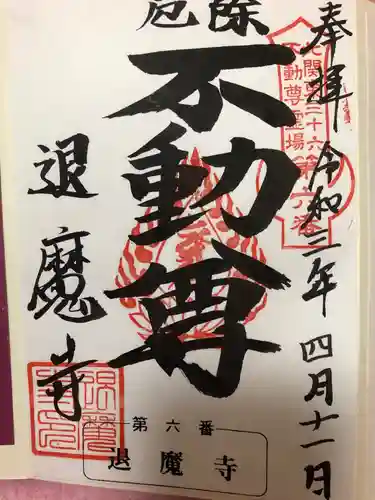 奉拝
令和三年 四月十一日
北関東三十六
不動尊霊場第六番
厄除
不動尊
退魔寺
第六番
退魔寺